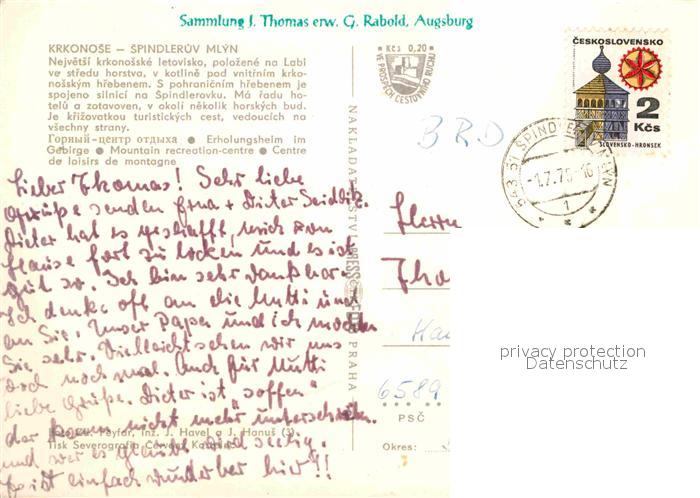 Sammlung J. Thomas erw. G. Rabold, Augsburg
KRKONOŠE — ŠPINDLERŮV MLÝN
Největší krkonošské letovisko, položené na Labi
ve středu horstva, v kotlině pod vnitřním krko-
nošským hřebenem. S pohraničním hřebenem je
spojeno silnicí na Špindlerovku. Má řadu ho-
telů a zotavoven, v okolí několik horských bud.
Je křižovatkou turistických cest, vedoucích na
všechny strany.
Горный-центр отдыха ● Erholungsheim im
Gebirge ● Mountain recreation-centre ● Centre
de loisirs de montagne
Lieber Thomas! Sehr liebe
Grüße senden Erna + Dieter Seidlitz.
Dieter hat es geschafft, mich von
Hause fort zu locken und es ist
gut so. Ich bin sehr dankbar.
Ich denke oft an die Mutti und
an Sie. Unser Papa und ich mochten
Sie sehr. Vielleicht sehen wir uns
doch noch mal. Auch für Mutti
liebe Grüße. Dieter ist "soffen"
der kann nicht mehr unterschreiben.
und wer es glaubt wird seelig.
Es ist einfach wunderbar hier!!
Foto Zd. Feyfar, Inž. J. Havel a J. Hanuš (2)
Tisk Severografia Červený Kostelec
Kčs 0,20
VE PROSPĚCH CESTOVNÍHO RUCHU
NAKLADATELSTVÍ PRESSFOTO PRAHA
BRD
ČESKOSLOVENSKO
2
Kčs
SLOVENSKO-HRONSEK
543 51 ŠPINDLERŮV MLÝN
-1.7.76-16
1
Herrn
Tho
6589
PSČ
Okres:
privacy protection
Datenschutz